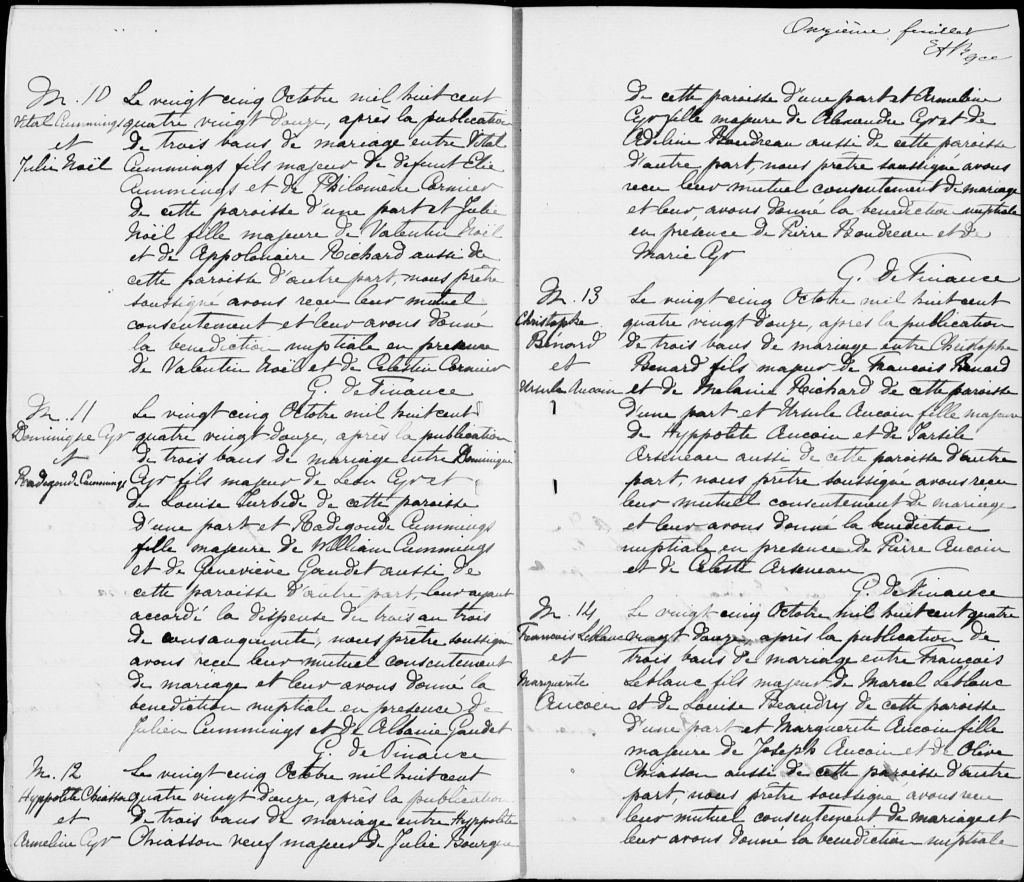 M. 10
Vital Cummings
et
Julie Noël
Le vingt cinq Octobre mil huit cent
quatre vingt douze, après la publication
de trois bans de mariage entre Vital
Cummings fils majeur de defunt Elie
Cummings et de Philomène Cormier
de cette paroisse d'une part et Julie
Noël fille majeure de Valentin Noël
et de Appolonaire Richard aussi de
cette paroisse d'autre part, nous prêtre
soussigné avons reçu leur mutuel
consentement et leur avons donné
la benediction nuptiale en presence
de Valentin Noël et de Celestin Cormier
G. de Finance
M. 11
Dominique Cyr
et
Radegonde Cummings
Le vingt cinq Octobre mil huit cent
quatre vingt douze, après la publication
de trois bans de mariage entre Dominique
Cyr fils majeur de Leon Cyr et
de Louise Turbide de cette paroisse
d'une part et Radegonde Cummings
fille majeure de William Cummings
et de Geneviève Gaudet aussi de
cette paroisse d'autre part, leur ayant
accordé la dispense du trois au trois
de consanguinité, nous prêtre soussigné
avons reçu leur mutuel consentement
de mariage et leur avons donné la
benediction nuptiale en presence de
Julien Cummings et de Albanie Gaudet
G. de Finance
M. 12
Hyppolite Chiasson
et
Armeline Cyr
Le vingt cinq Octobre mil huit cent
quatre vingt douze, après la publication
de trois bans de mariage entre Hyppolite
Chiasson veuf majeur de Julie Bourgue
Onzième feuillet
de cette paroisse d'une part et Armeline
Cyr fille majeure de Alexandre Cyr et de
Adeline Boudreau aussi de cette paroisse
d'autre part, nous prêtre soussigné avons
reçu leur mutuel consentement de mariage
et leur avons donné la benediction nuptiale
en presence de Pierre Boudreau et de
Marie Cyr
G. de Finance
M. 13
Christophe
Bénard
et
Ursule Aucoin
Le vingt cinq Octobre mil huit cent
quatre vingt douze, après la publication
de trois bans de mariage entre Christophe
Benard fils majeur de Francois Benard
et de Melanie Richard de cette paroisse
d'une part et Ursule Aucoin fille majeure
de Hyppolite Aucoin et de Tarsile
Arseneau aussi de cette paroisse d'autre
part, nous prêtre soussigné avons reçu
leur mutuel consentement de mariage
et leur avons donné la benediction
nuptiale en presence de Pierre Aucoin
et de Celeste Arseneau
G. de Finance
M. 14
Francois Leblanc
et
Marguerite
Aucoin
Le vingt cinq Octobre mil huit cent quatre
vingt douze, après la publication de
trois bans de mariage entre François
Leblanc fils majeur de Marcel Leblanc
et de Louise Beaudry de cette paroisse
d'une part et Marguerite Aucoin fille
majeure de Joseph Aucoin et de Olive
Chiasson aussi de cette paroisse d'autre
part, nous prêtre soussigné avons reçu
leur mutuel consentement de mariage et
leur avons donné la benediction nuptiale